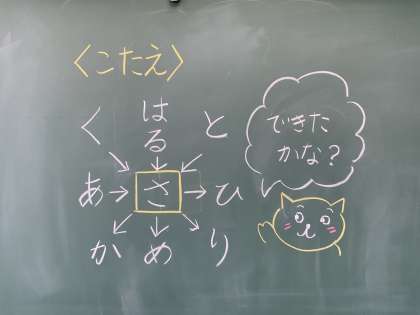 〈こたえ〉
はる
く と
あ さ ひ
か め り
できた
かな?